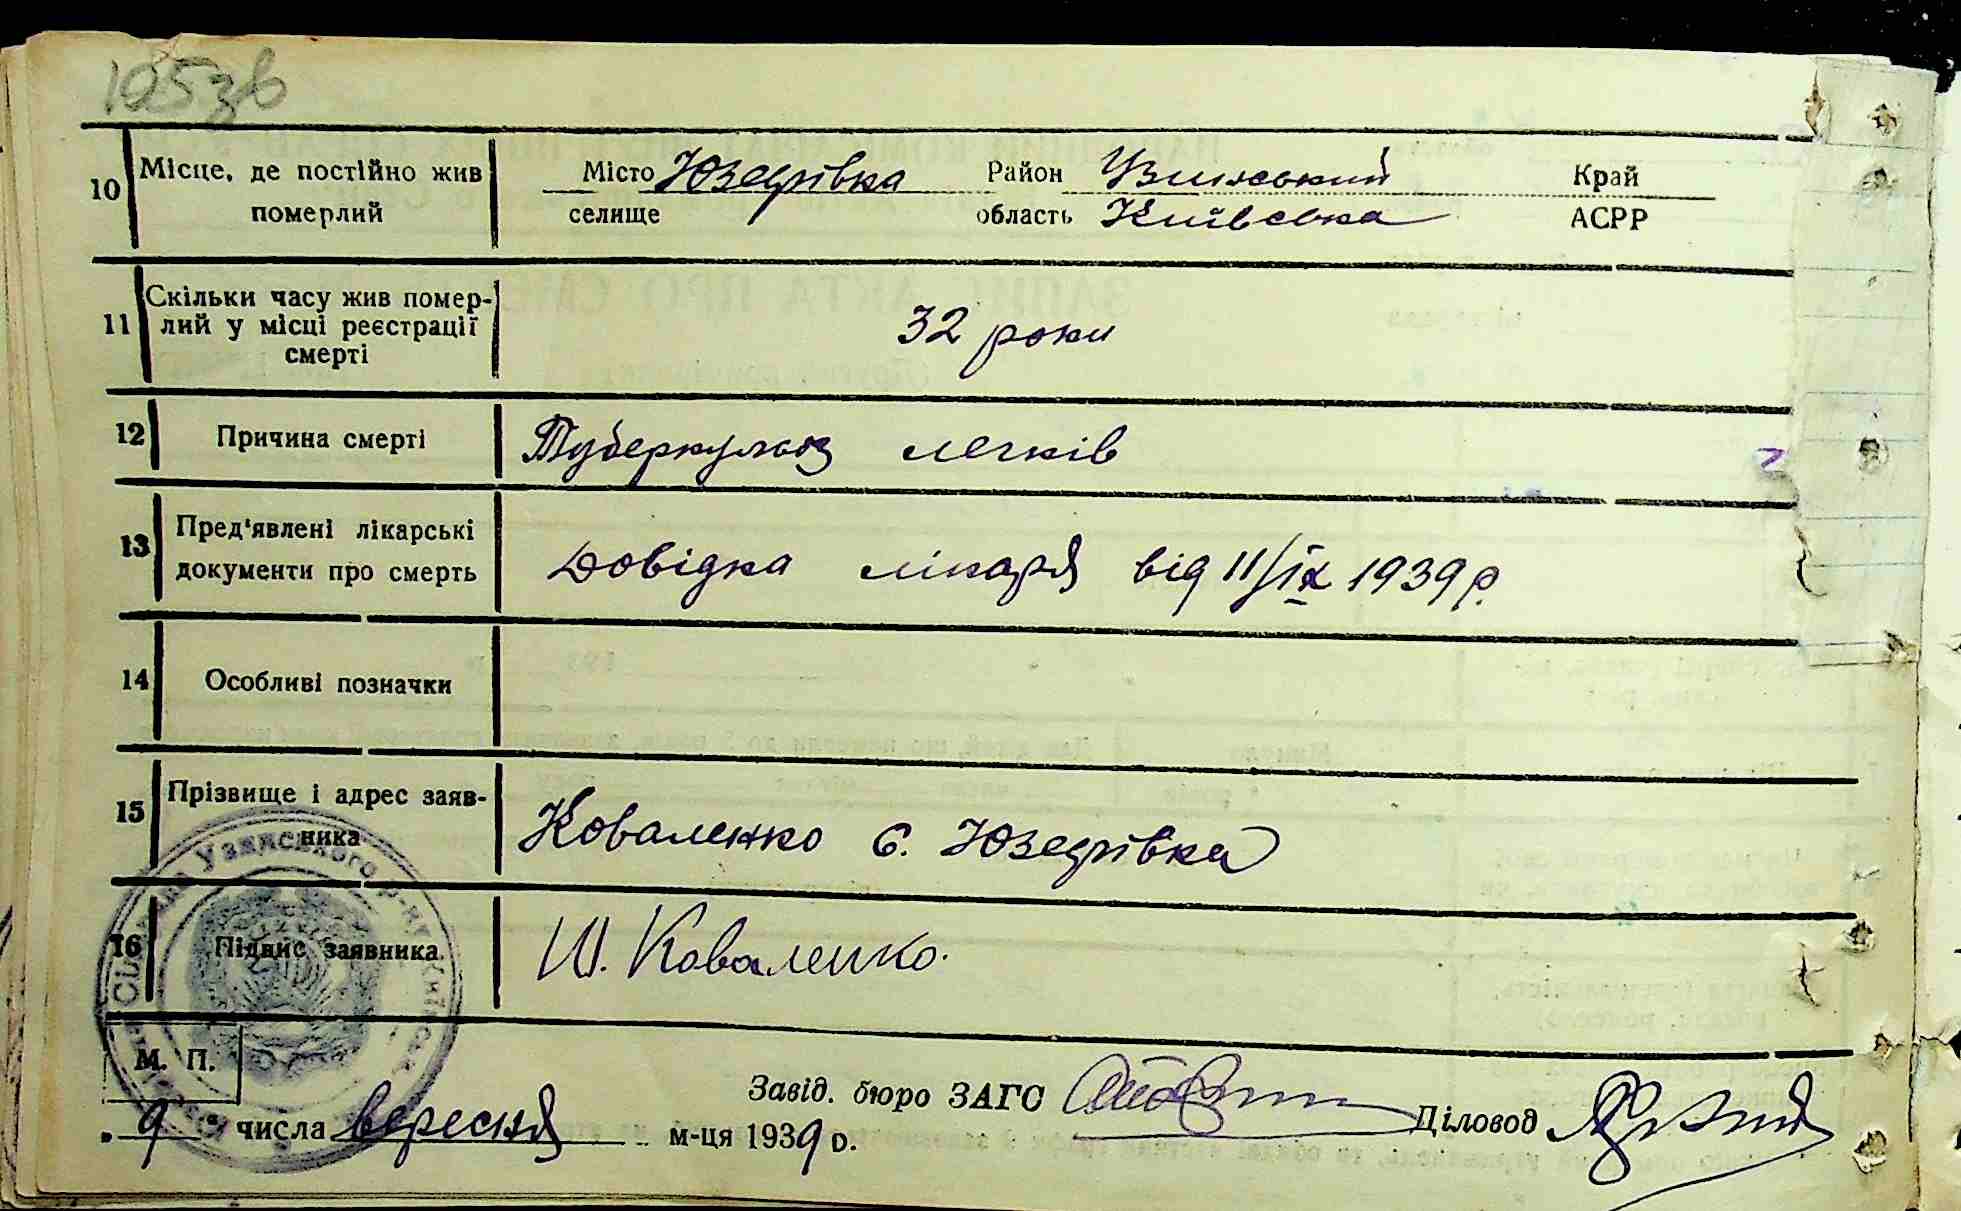 105зв
10 Місце, де постійно жив померлий Місто селище Юзефівка Район Узинський область Київська Край АСРР
11 Скільки часу жив померлий у місці реєстрації смерті 32 роки
12 Причина смерті Туберкульоз легків
13 Пред'явлені лікарські документи про смерть Довідка лікаря від 11/IX 1939 р.
14 Особливі позначки
15 Прізвище і адрес заявника Коваленко с. Юзефівка
16 Підпис заявника Ш. Коваленко.
М. П.
Узинського р-ну
Завід. бюро ЗАГС Діловод
„9 числа вересня м-ця 1939 р.